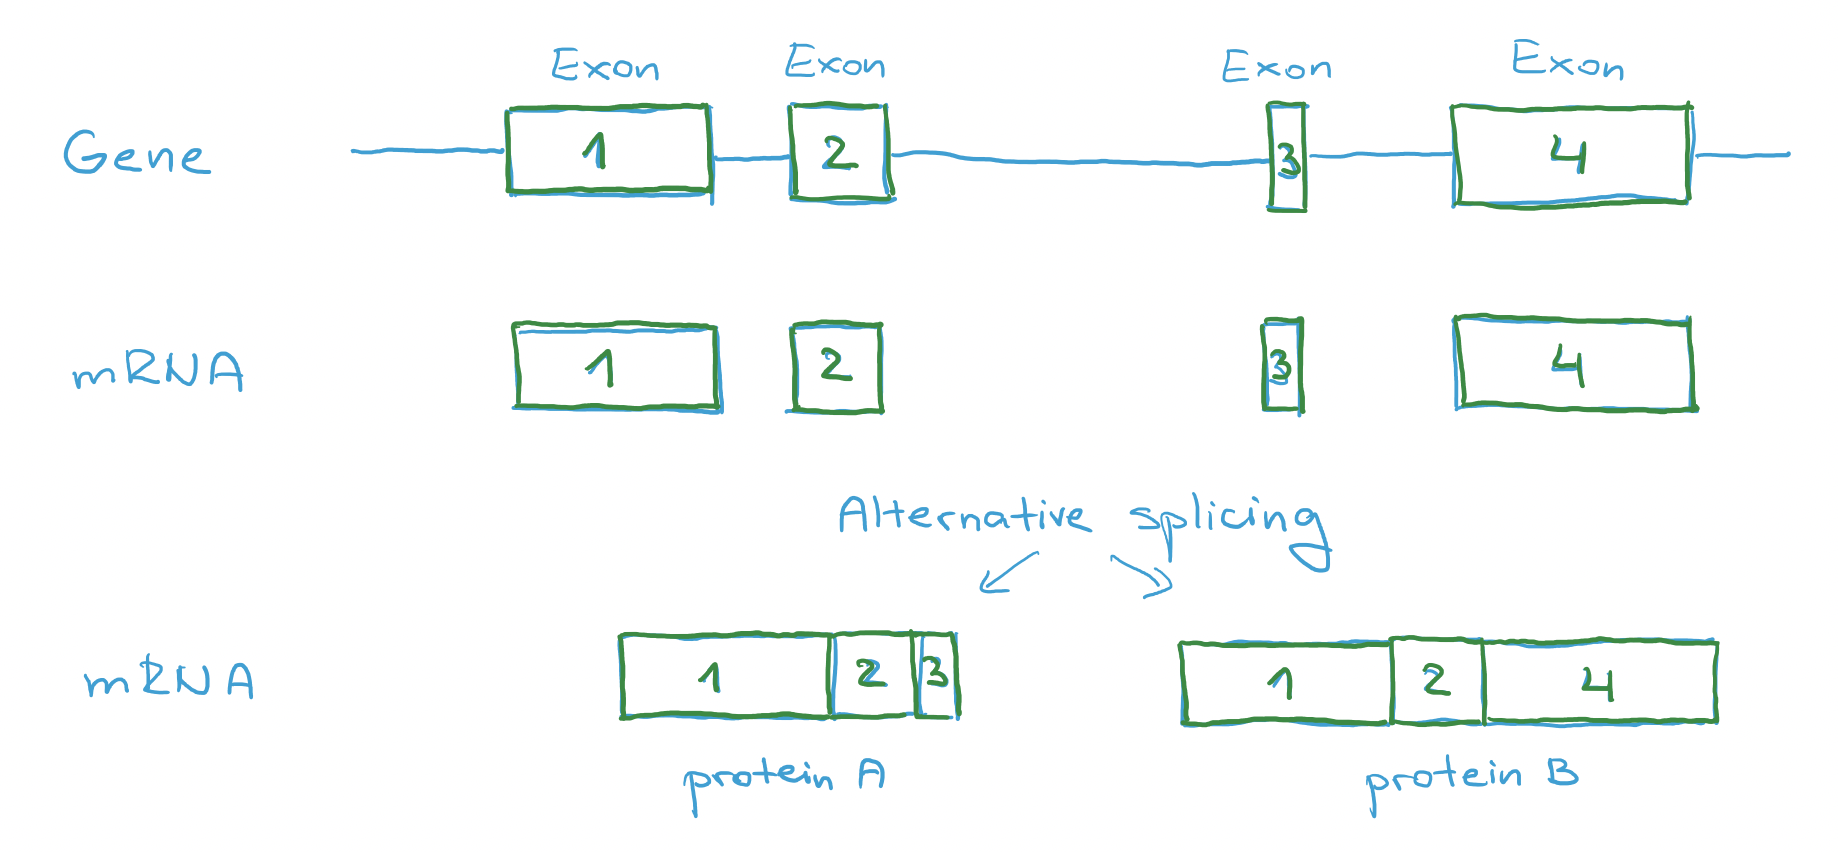 Exon Exon Exon Exon
Gene 1 2 3 4
mRNA 1 2 3 4
Alternative splicing
mRNA 1 2 3 1 2 4
protein A protein B